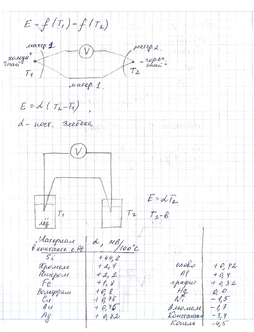 E = f(T₁) - f(T₂)
матер.2
V
матер.2
"холодный"
"горячий"
T₁
матер. 1
T₂
E = α (T₂ - T₁)
α - пост. Зеебека
V
лёд
T₁
T₂
E = αT₂
T₂ - в
Материал в контакте с Pt
α, мВ/100°C
Si +44,8
Хромель +2,4
Нихром +2,2
Fe +1,8
Вольфрам +0,8
Cu +0,76
Au +0,76
Ag +0,72
олово +0,42
Al +0,4
графит +0,32
Hg 0,0
Ni -1,5
Алюмель -1,7
Константан -3,4
Копель -4,5